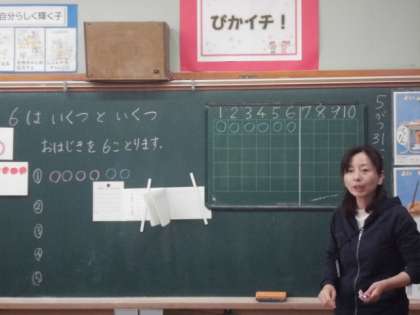 自分らしく輝く子
ぴかイチ！
6は いくつと いくつ
おはじきを 6こ とります。
①
②
③
④
⑤
1 2 3 4 5 6 7 8 9 10
5がつ31